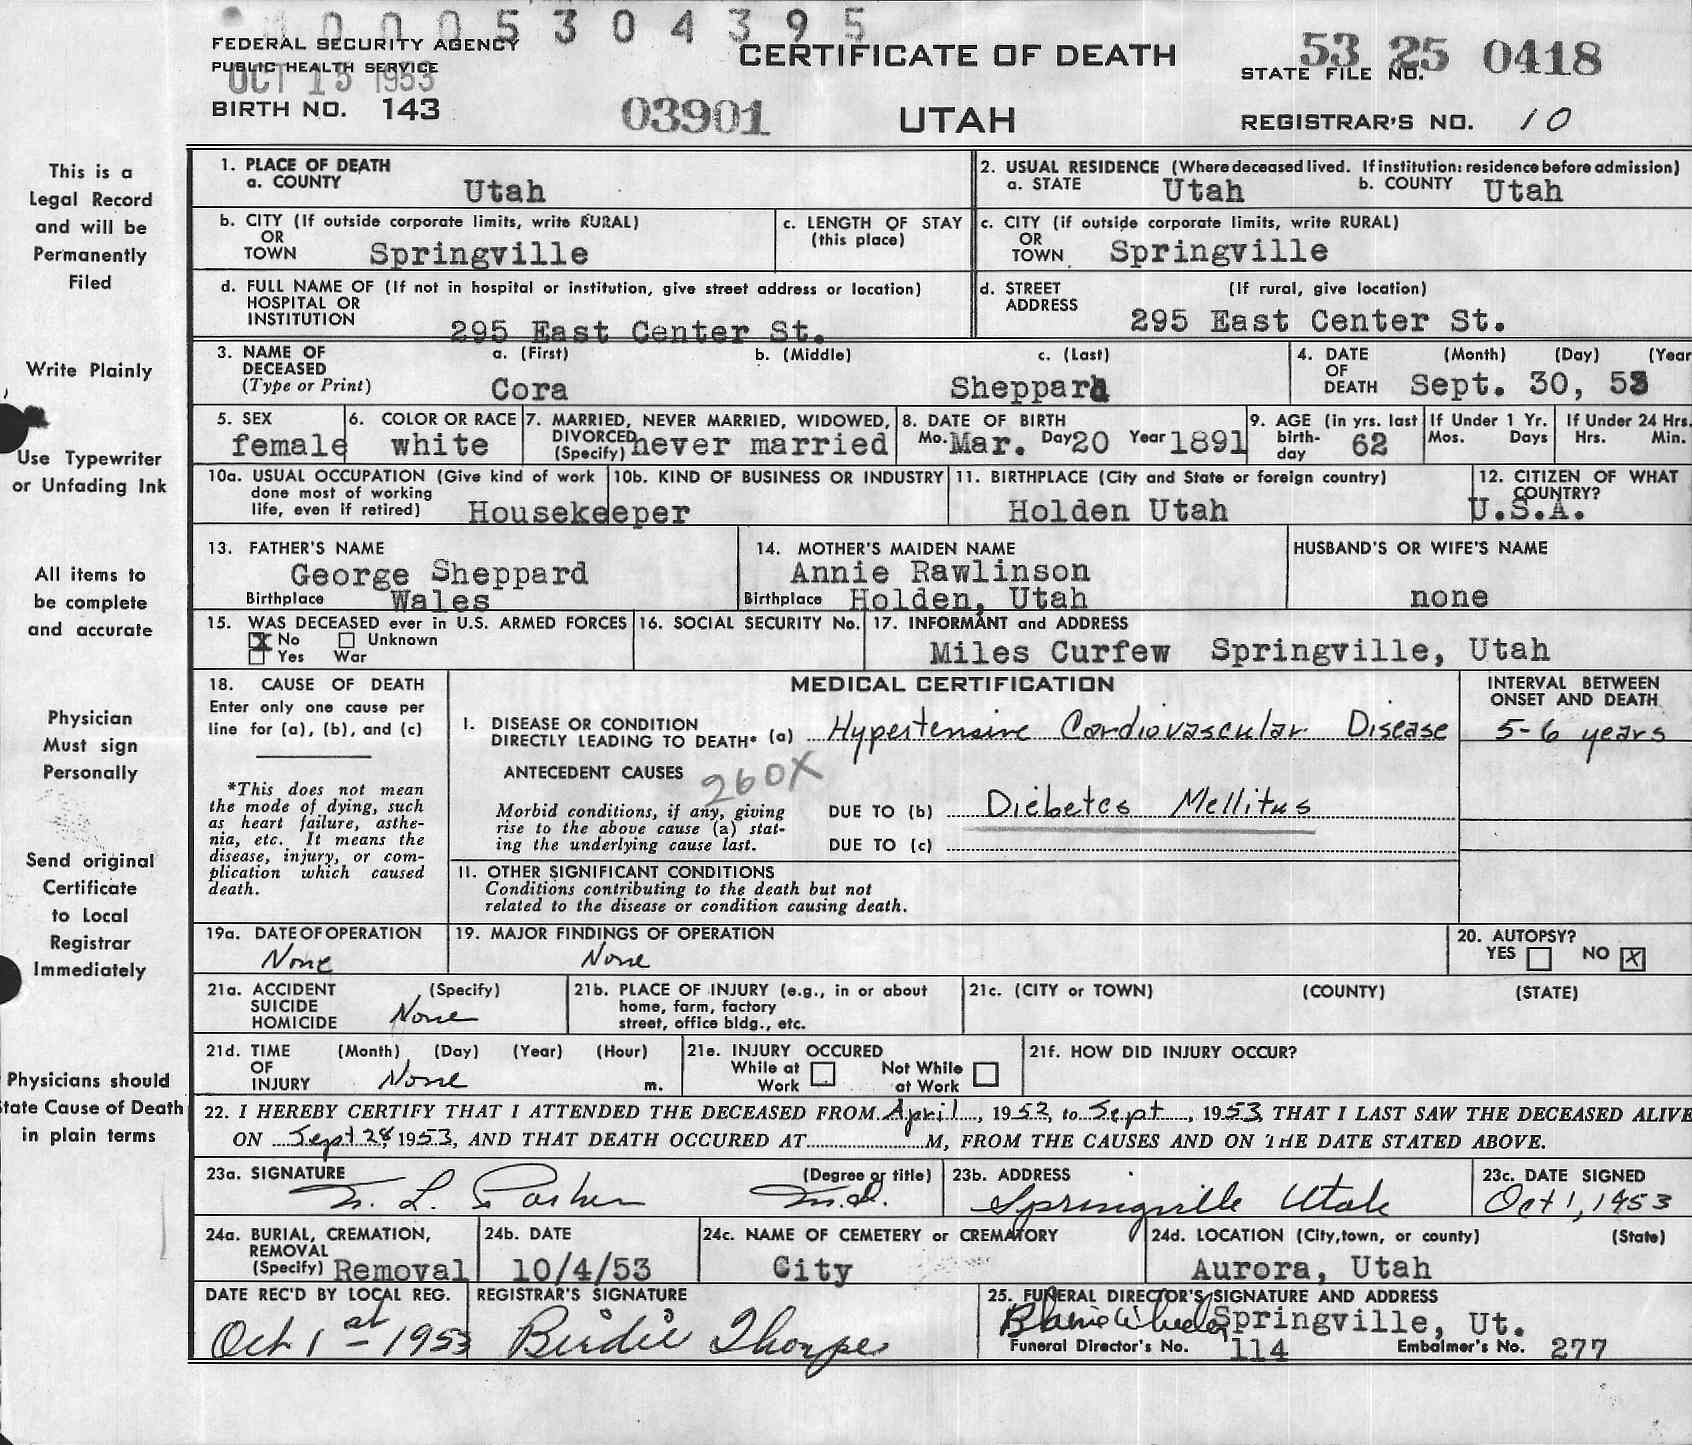 0005304395
FEDERAL SECURITY AGENCY
PUBLIC HEALTH SERVICE
OCT 15 1953
BIRTH NO. 143
03901
CERTIFICATE OF DEATH
UTAH
53 25 0418
STATE FILE NO.
REGISTRAR'S NO. 10
This is a
Legal Record
and will be
Permanently
Filed
Write Plainly
Use Typewriter
or Unfading Ink
All items to
be complete
and accurate
Physician
Must sign
Personally
Send original
Certificate
to Local
Registrar
Immediately
Physicians should
tate Cause of Death
in plain terms
1. PLACE OF DEATH
a. COUNTY Utah
2. USUAL RESIDENCE (Where deceased lived. If institution: residence before admission)
a. STATE Utah b. COUNTY Utah
b. CITY (If outside corporate limits, write RURAL)
OR
TOWN Springville
c. LENGTH OF STAY
(this place)
c. CITY (if outside corporate limits, write RURAL)
OR
TOWN Springville
d. FULL NAME OF (If not in hospital or institution, give street address or location)
HOSPITAL OR
INSTITUTION 295 East Center St.
d. STREET (If rural, give location)
ADDRESS 295 East Center St.
3. NAME OF DECEASED
(Type or Print)
a. (First) b. (Middle) c. (Last)
Cora Sheppard
4. DATE OF DEATH (Month) (Day) (Year
Sept. 30, 53
5. SEX
female
6. COLOR OR RACE
white
7. MARRIED, NEVER MARRIED, WIDOWED,
DIVORCED
(Specify) never married
8. DATE OF BIRTH
Mo. Mar. Day 20 Year 1891
9. AGE (in yrs. last
birth-
day 62
If Under 1 Yr.
Mos. Days
If Under 24 Hrs.
Hrs. Min.
10a. USUAL OCCUPATION (Give kind of work
done most of working
life, even if retired) Housekeeper
10b. KIND OF BUSINESS OR INDUSTRY
11. BIRTHPLACE (City and State or foreign country)
Holden Utah
12. CITIZEN OF WHAT
COUNTRY?
U.S.A.
13. FATHER'S NAME
George Sheppard
Birthplace Wales
14. MOTHER'S MAIDEN NAME
Annie Rawlinson
Birthplace Holden, Utah
HUSBAND'S OR WIFE'S NAME
none
15. WAS DECEASED ever in U.S. ARMED FORCES
X No Unknown
Yes War
16. SOCIAL SECURITY No.
17. INFORMANT and ADDRESS
Miles Curfew Springville, Utah
18. CAUSE OF DEATH
Enter only one cause per
line for (a), (b), and (c)
*This does not mean
the mode of dying, such
as heart failure, asthe-
nia, etc. It means the
disease, injury, or com-
plication which caused
death.
MEDICAL CERTIFICATION
INTERVAL BETWEEN
ONSET AND DEATH
I. DISEASE OR CONDITION
DIRECTLY LEADING TO DEATH* (a) Hypertensive Cardiovascular Disease 5-6 years
ANTECEDENT CAUSES 260X
Morbid conditions, if any, giving
rise to the above cause (a) stat-
ing the underlying cause last.
DUE TO (b) Diebetes Mellitus
DUE TO (c)
11. OTHER SIGNIFICANT CONDITIONS
Conditions contributing to the death but not
related to the disease or condition causing death.
19a. DATE OF OPERATION
None
19. MAJOR FINDINGS OF OPERATION
None
20. AUTOPSY?
YES NO X
21a. ACCIDENT (Specify)
SUICIDE
HOMICIDE None
21b. PLACE OF INJURY (e.g., in or about
home, farm, factory
street, office bldg., etc.
21c. (CITY or TOWN) (COUNTY) (STATE)
21d. TIME (Month) (Day) (Year) (Hour)
OF
INJURY None m.
21e. INJURY OCCURED
While at Work Not While at Work
21f. HOW DID INJURY OCCUR?
22. I HEREBY CERTIFY THAT I ATTENDED THE DECEASED FROM April, 1953, to Sept, 1953, THAT I LAST SAW THE DECEASED ALIVE
ON Sept 28, 1953, AND THAT DEATH OCCURED AT M, FROM THE CAUSES AND ON THE DATE STATED ABOVE.
23a. SIGNATURE (Degree or title)
L. M.D.
23b. ADDRESS
Springville Utah
23c. DATE SIGNED
Oct 1, 1953
24a. BURIAL, CREMATION,
REMOVAL
(Specify) Removal
24b. DATE
10/4/53
24c. NAME OF CEMETERY or CREMATORY
City
24d. LOCATION (City, town, or county) (State)
Aurora, Utah
DATE REC'D BY LOCAL REG.
Oct 1st - 1953
REGISTRAR'S SIGNATURE
Birdie Thorpe
25. FUNERAL DIRECTOR'S SIGNATURE AND ADDRESS
Springville, Ut.
Funeral Director's No. 114 Embalmer's No. 277